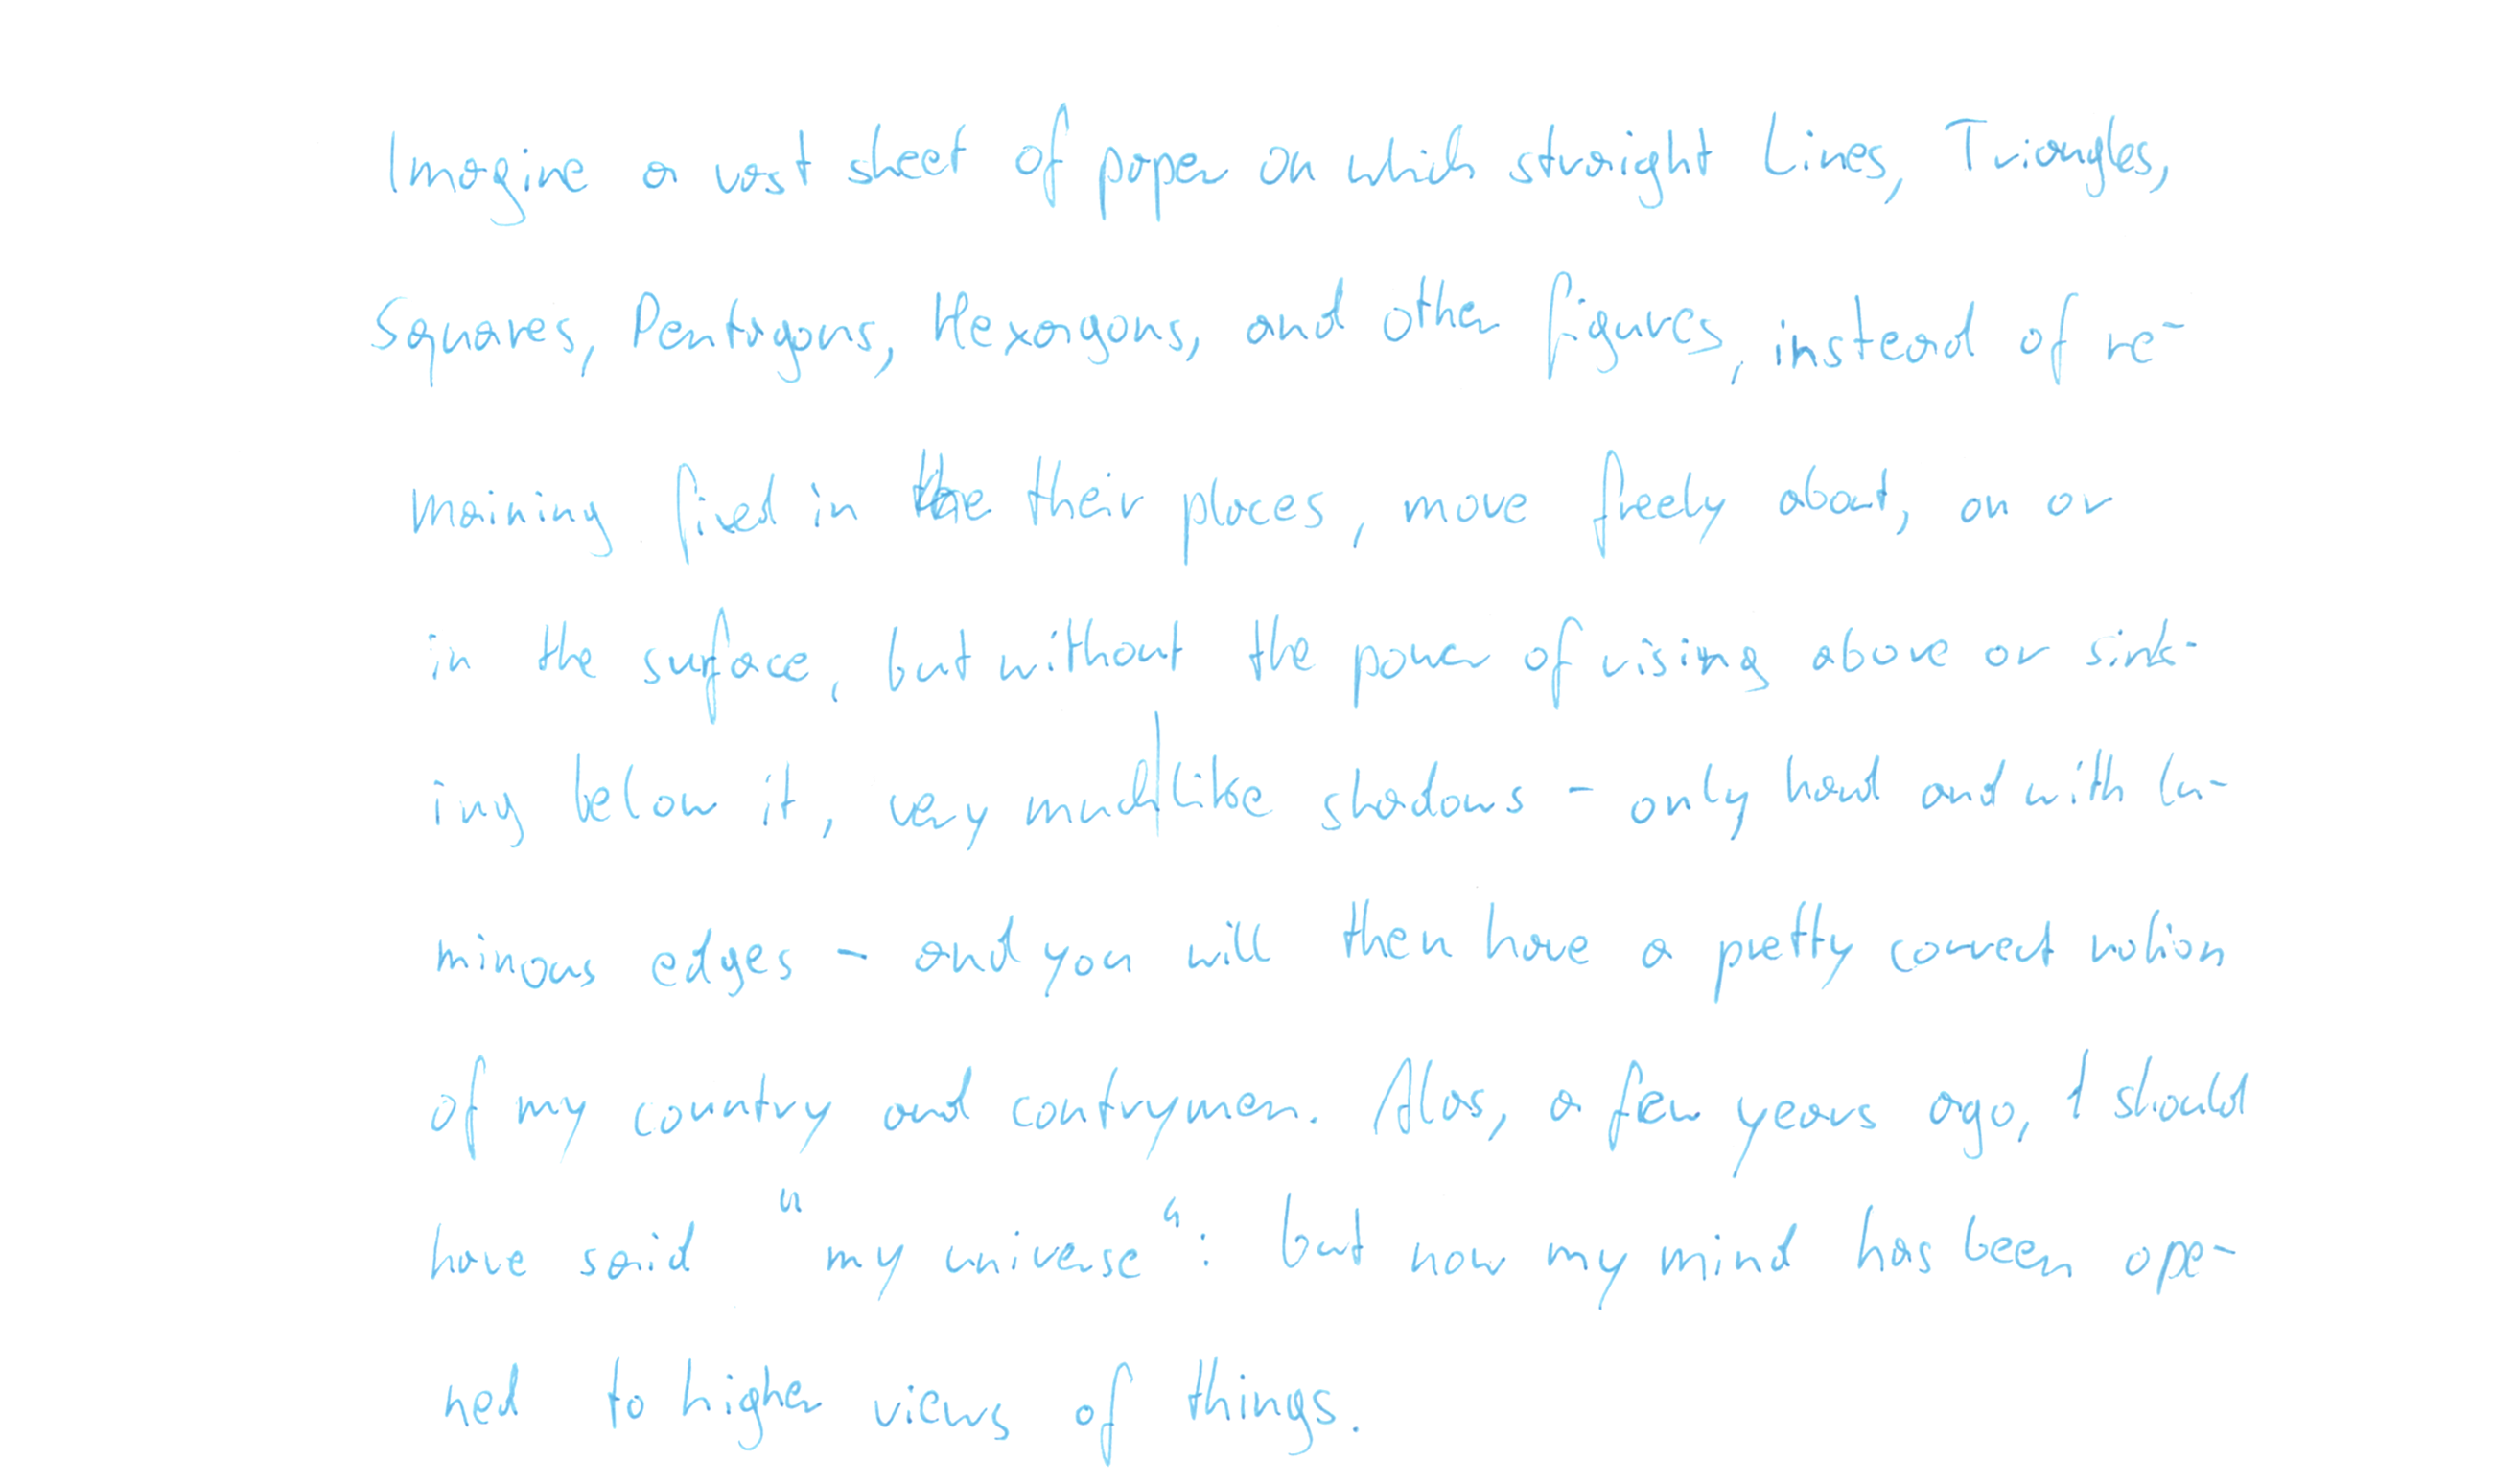 Imagine a vast sheet of paper on which straight Lines, Triangles,
Squares, Pentagons, Hexagons, and other figures, instead of re-
maining fixed in their places, move freely about, on or
in the surface, but without the power of rising above or sink-
ing below it, very much like shadows - only hard and with lu-
minous edges - and you will then have a pretty correct notion
of my country and contrymen. Alas, a few years ago, I should
have said "my universe": but now my mind has been ope-
ned to higher views of things.